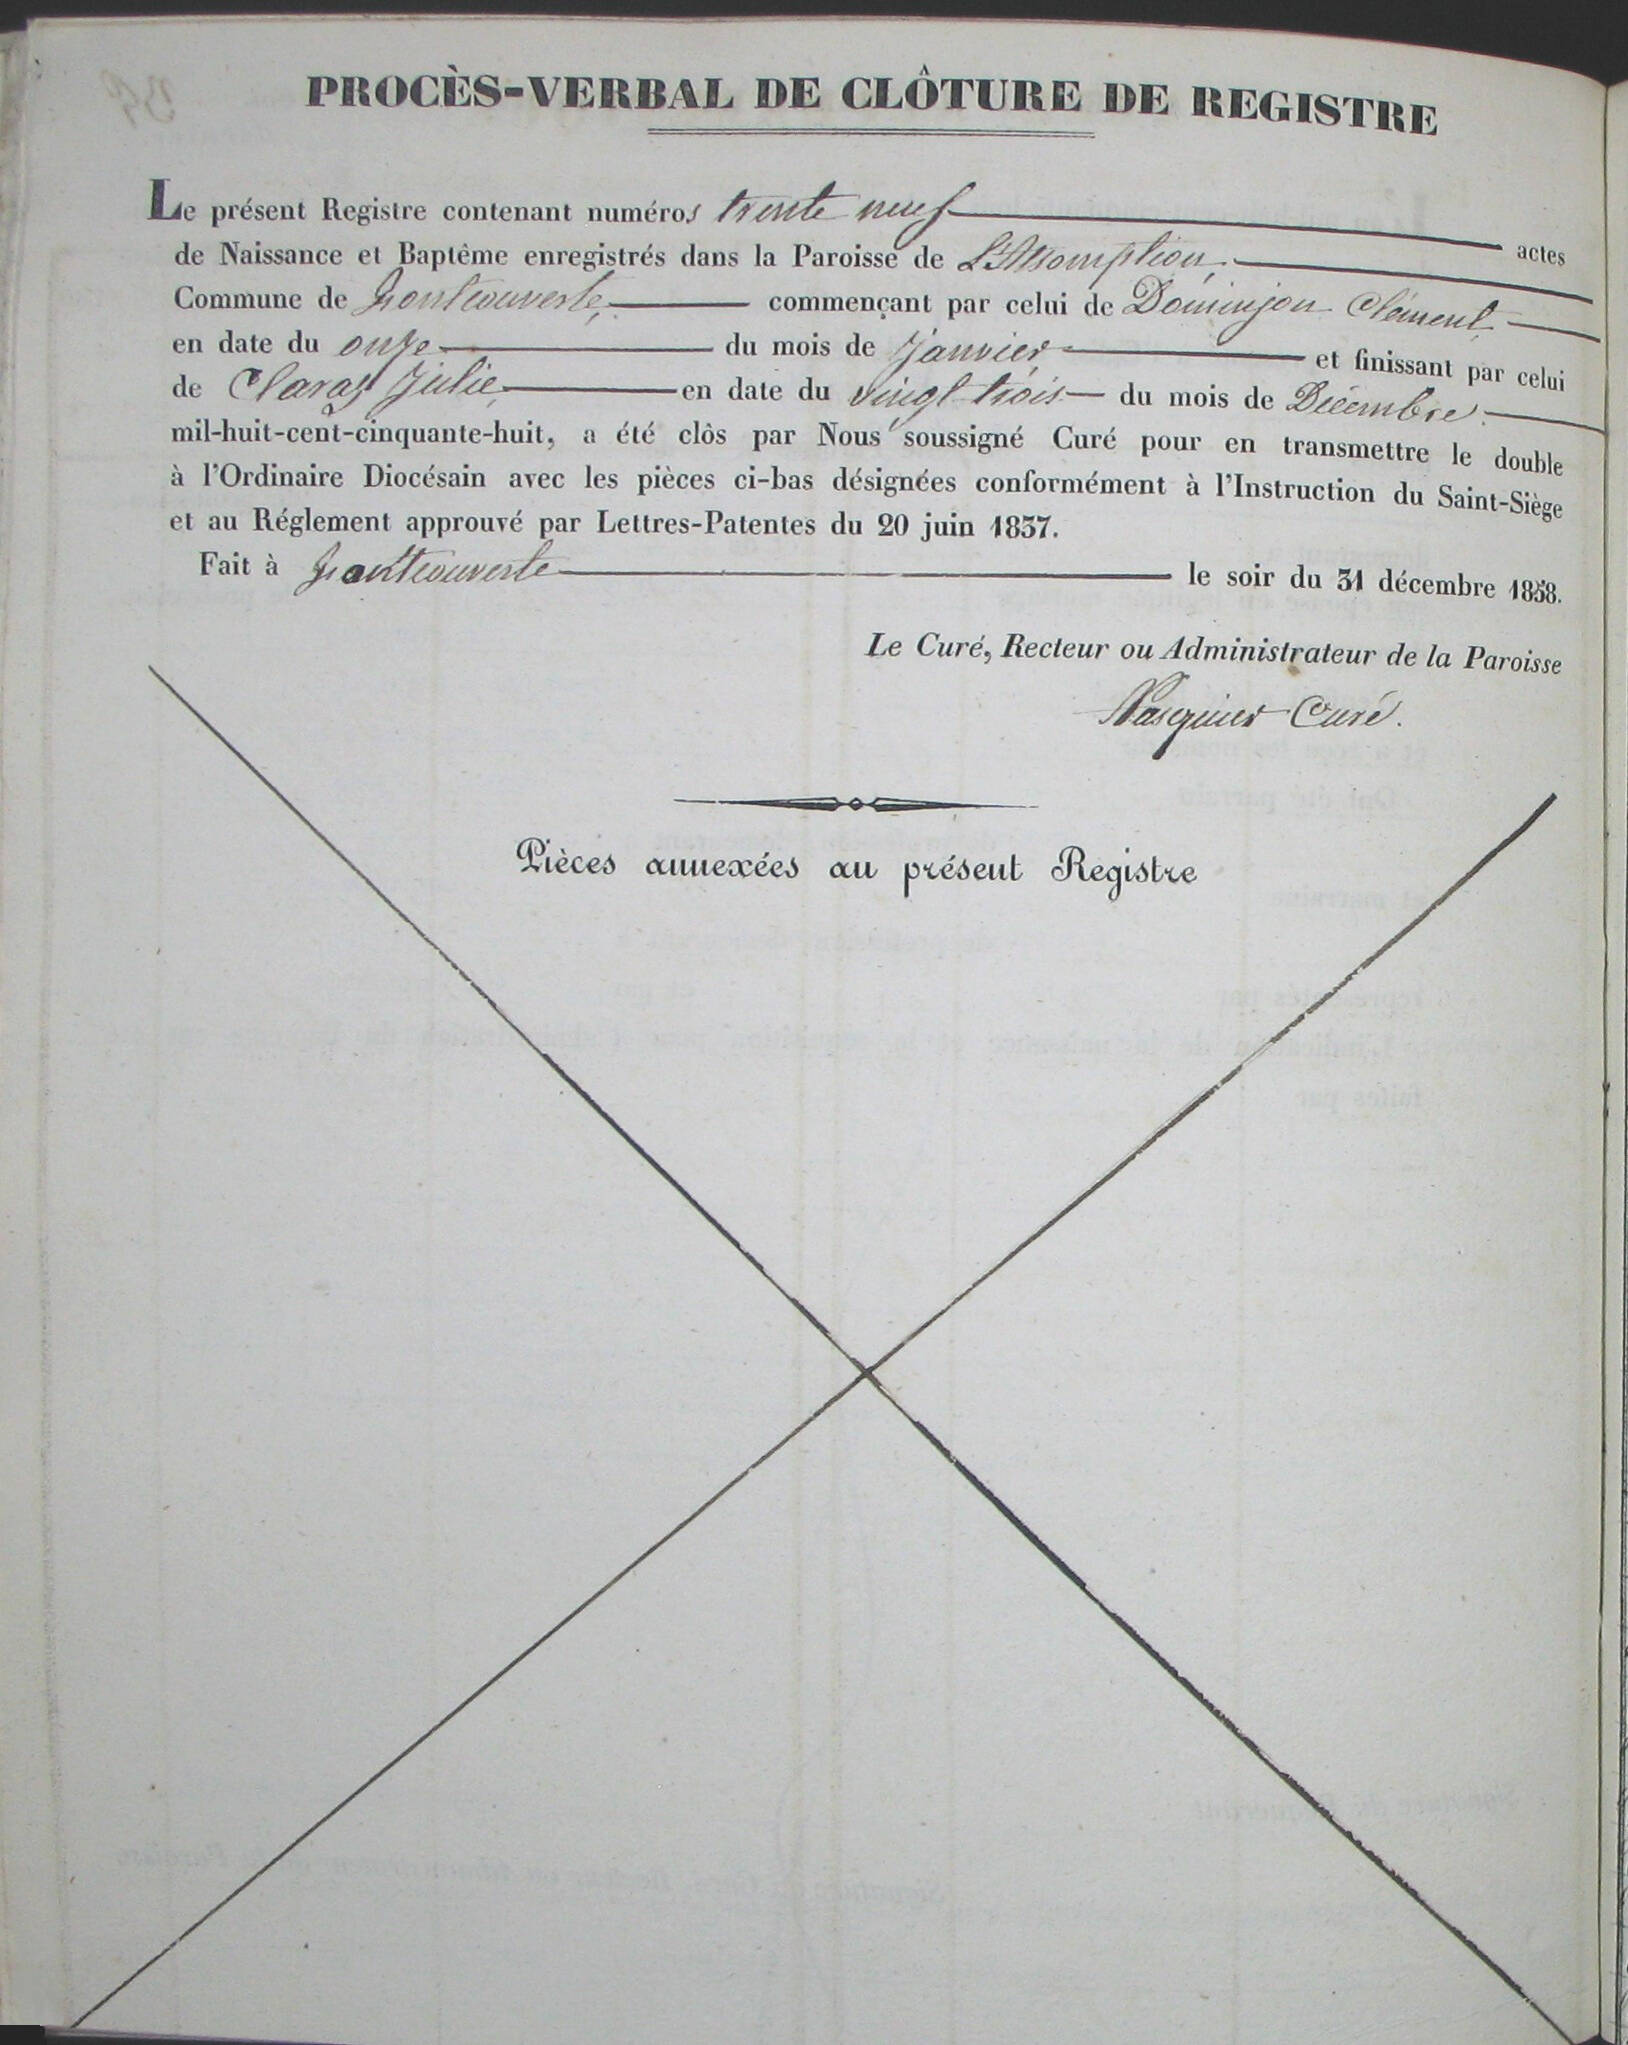 PROCÈS-VERBAL DE CLÔTURE DE REGISTRE
Le présent Registre contenant numéros trente neuf actes
de Naissance et Baptême enregistrés dans la Paroisse de L'Assomption,
Commune de Hontcouverte, commençant par celui de Dominjon Clément,
en date du onze du mois de Janvier et finissant par celui
de Claraz Julie, en date du vingt trois du mois de Décembre
mil-huit-cent-cinquante-huit, a été clôs par Nous soussigné Curé pour en transmettre le double
à l'Ordinaire Diocésain avec les pièces ci-bas désignées conformément à l'Instruction du Saint-Siège
et au Réglement approuvé par Lettres-Patentes du 20 juin 1837.
Fait à Hontcouverte le soir du 31 décembre 1858.
Le Curé, Recteur ou Administrateur de la Paroisse
Pasquier Curé.
Pièces annexées au présent Registre